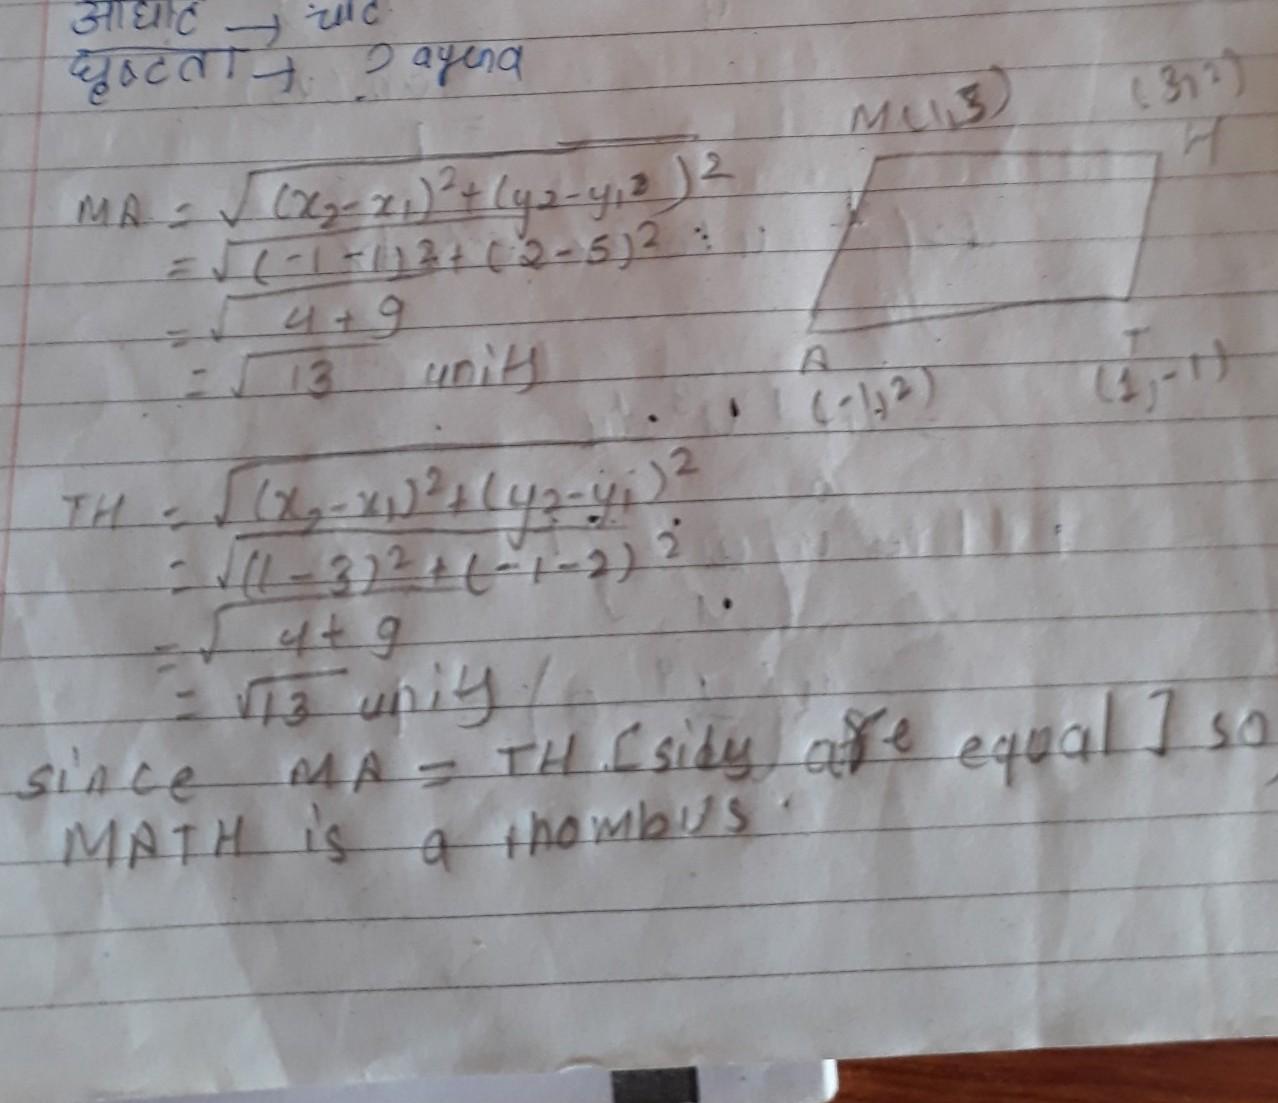 आघात → चोट
धृष्टता →
M(1,5) (3,2)
H
MA = √(x₂-x₁)²+(y2-y₁)²
= √(-1-1)2+(2-5)2
= √4+9
= √13 units
A T
(-1,2) (1,-1)
TH = √(x₂-x₁)²+(y2-y₁)²
= √(1-3)²+(-1-2)2
= √4+9
= √13 units
since MA = TH [sides are equal] so,
MATH is a rhombus.